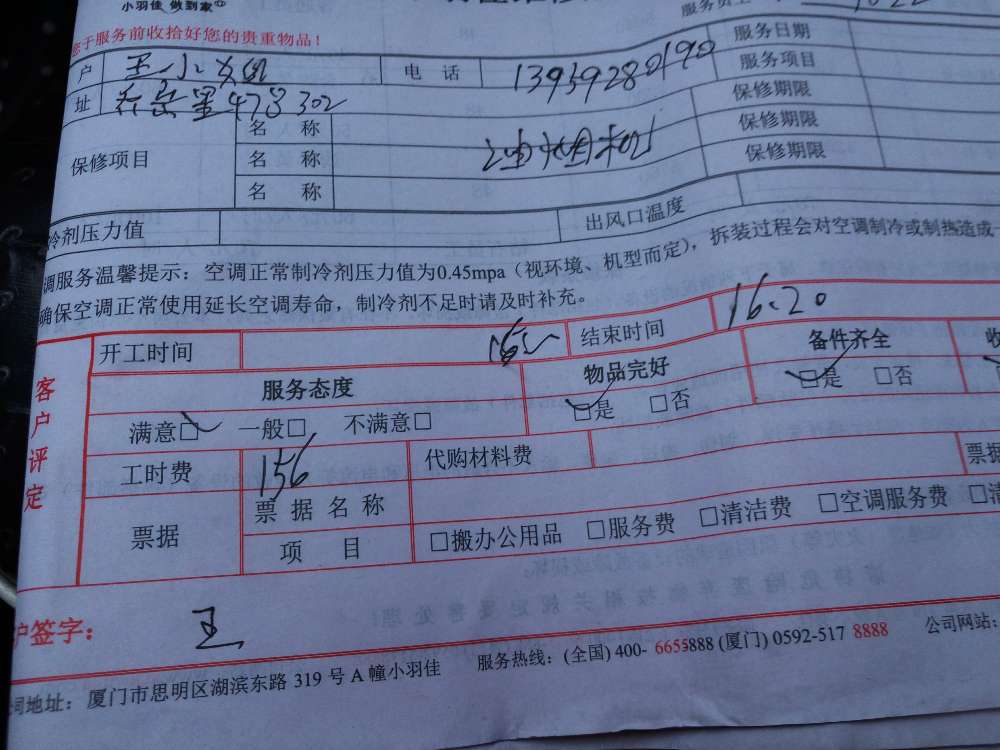 小羽佳 做到家
于服务前收拾好您的贵重物品！
服务日期
户 王小姐 电话 13959280190 服务项目
址 岳阳里47号302 保修期限
保修项目 名称 油烟机 保修期限
名称 保修期限
名称
冷剂压力值 出风口温度
调服务温馨提示：空调正常制冷剂压力值为0.45mpa（视环境、机型而定），拆装过程会对空调制冷或制热造成一
确保空调正常使用延长空调寿命，制冷剂不足时请及时补充。
客户评定
开工时间 结束时间 16.20
服务态度 物品完好 备件齐全 收
满意□ 一般□ 不满意□ □是 □否 □是 □否
工时费 156 代购材料费
票据 票据名称 票据
项目 □搬办公用品 □服务费 □清洁费 □空调服务费 □清
户签字： 王
司地址：厦门市思明区湖滨东路 319 号 A 幢小羽佳 服务热线：(全国) 400- 6655888 (厦门) 0592-517 8888 公司网站：